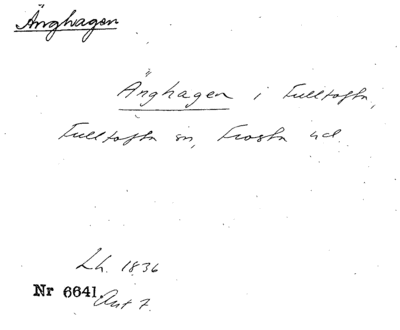 Änghagen
Änghagen i Fulltofta,
Fulltofta sn, Frosta hd.
Lh. 1836
Nr 6641. Ant 7.